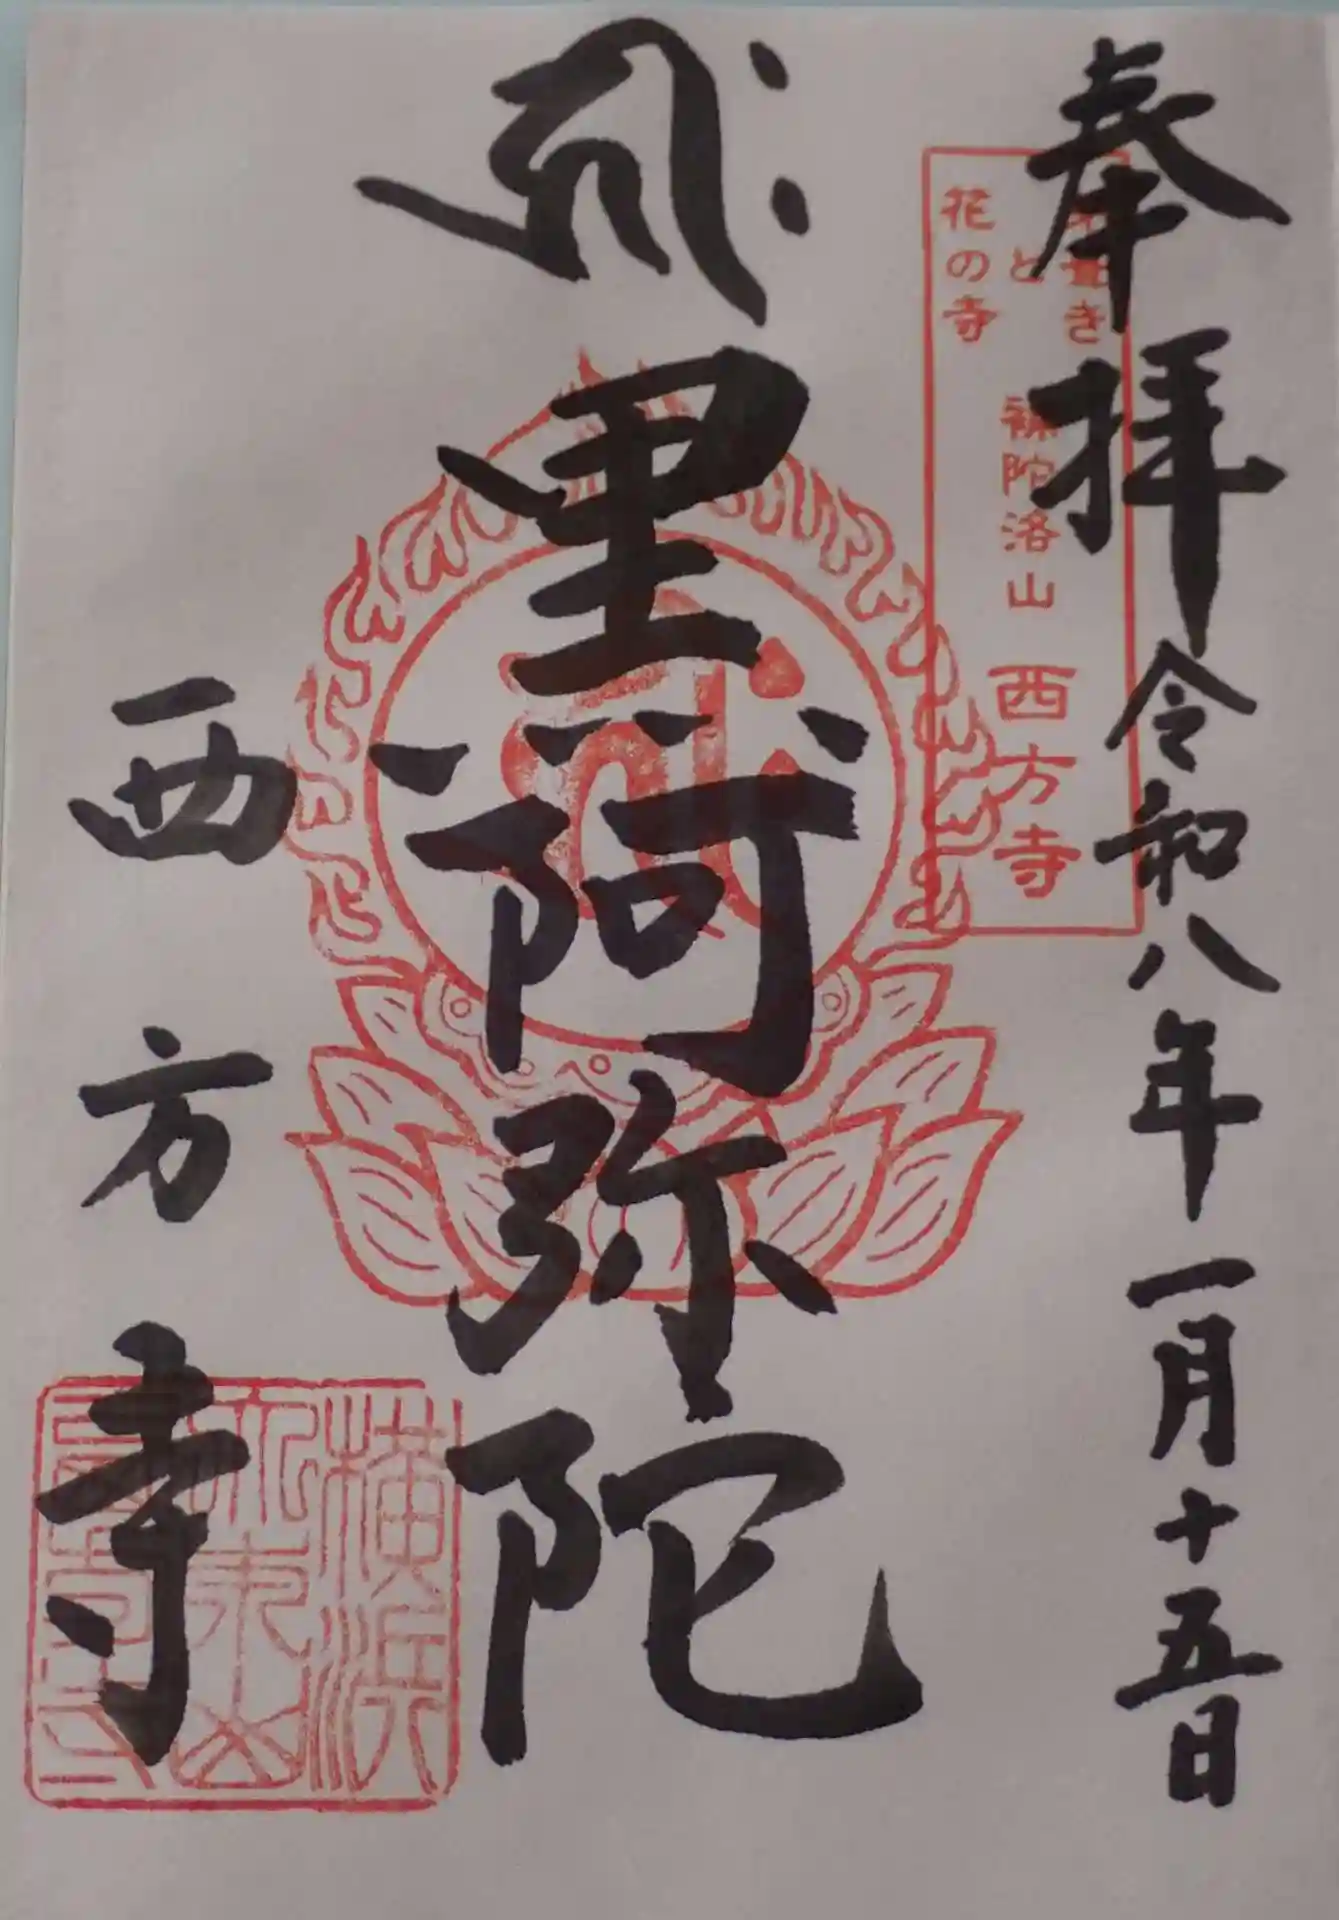 奉拝
令和八年一月十五日
き
と
花の寺
補陀洛山 西方寺
黒阿弥陀
西方寺
横浜